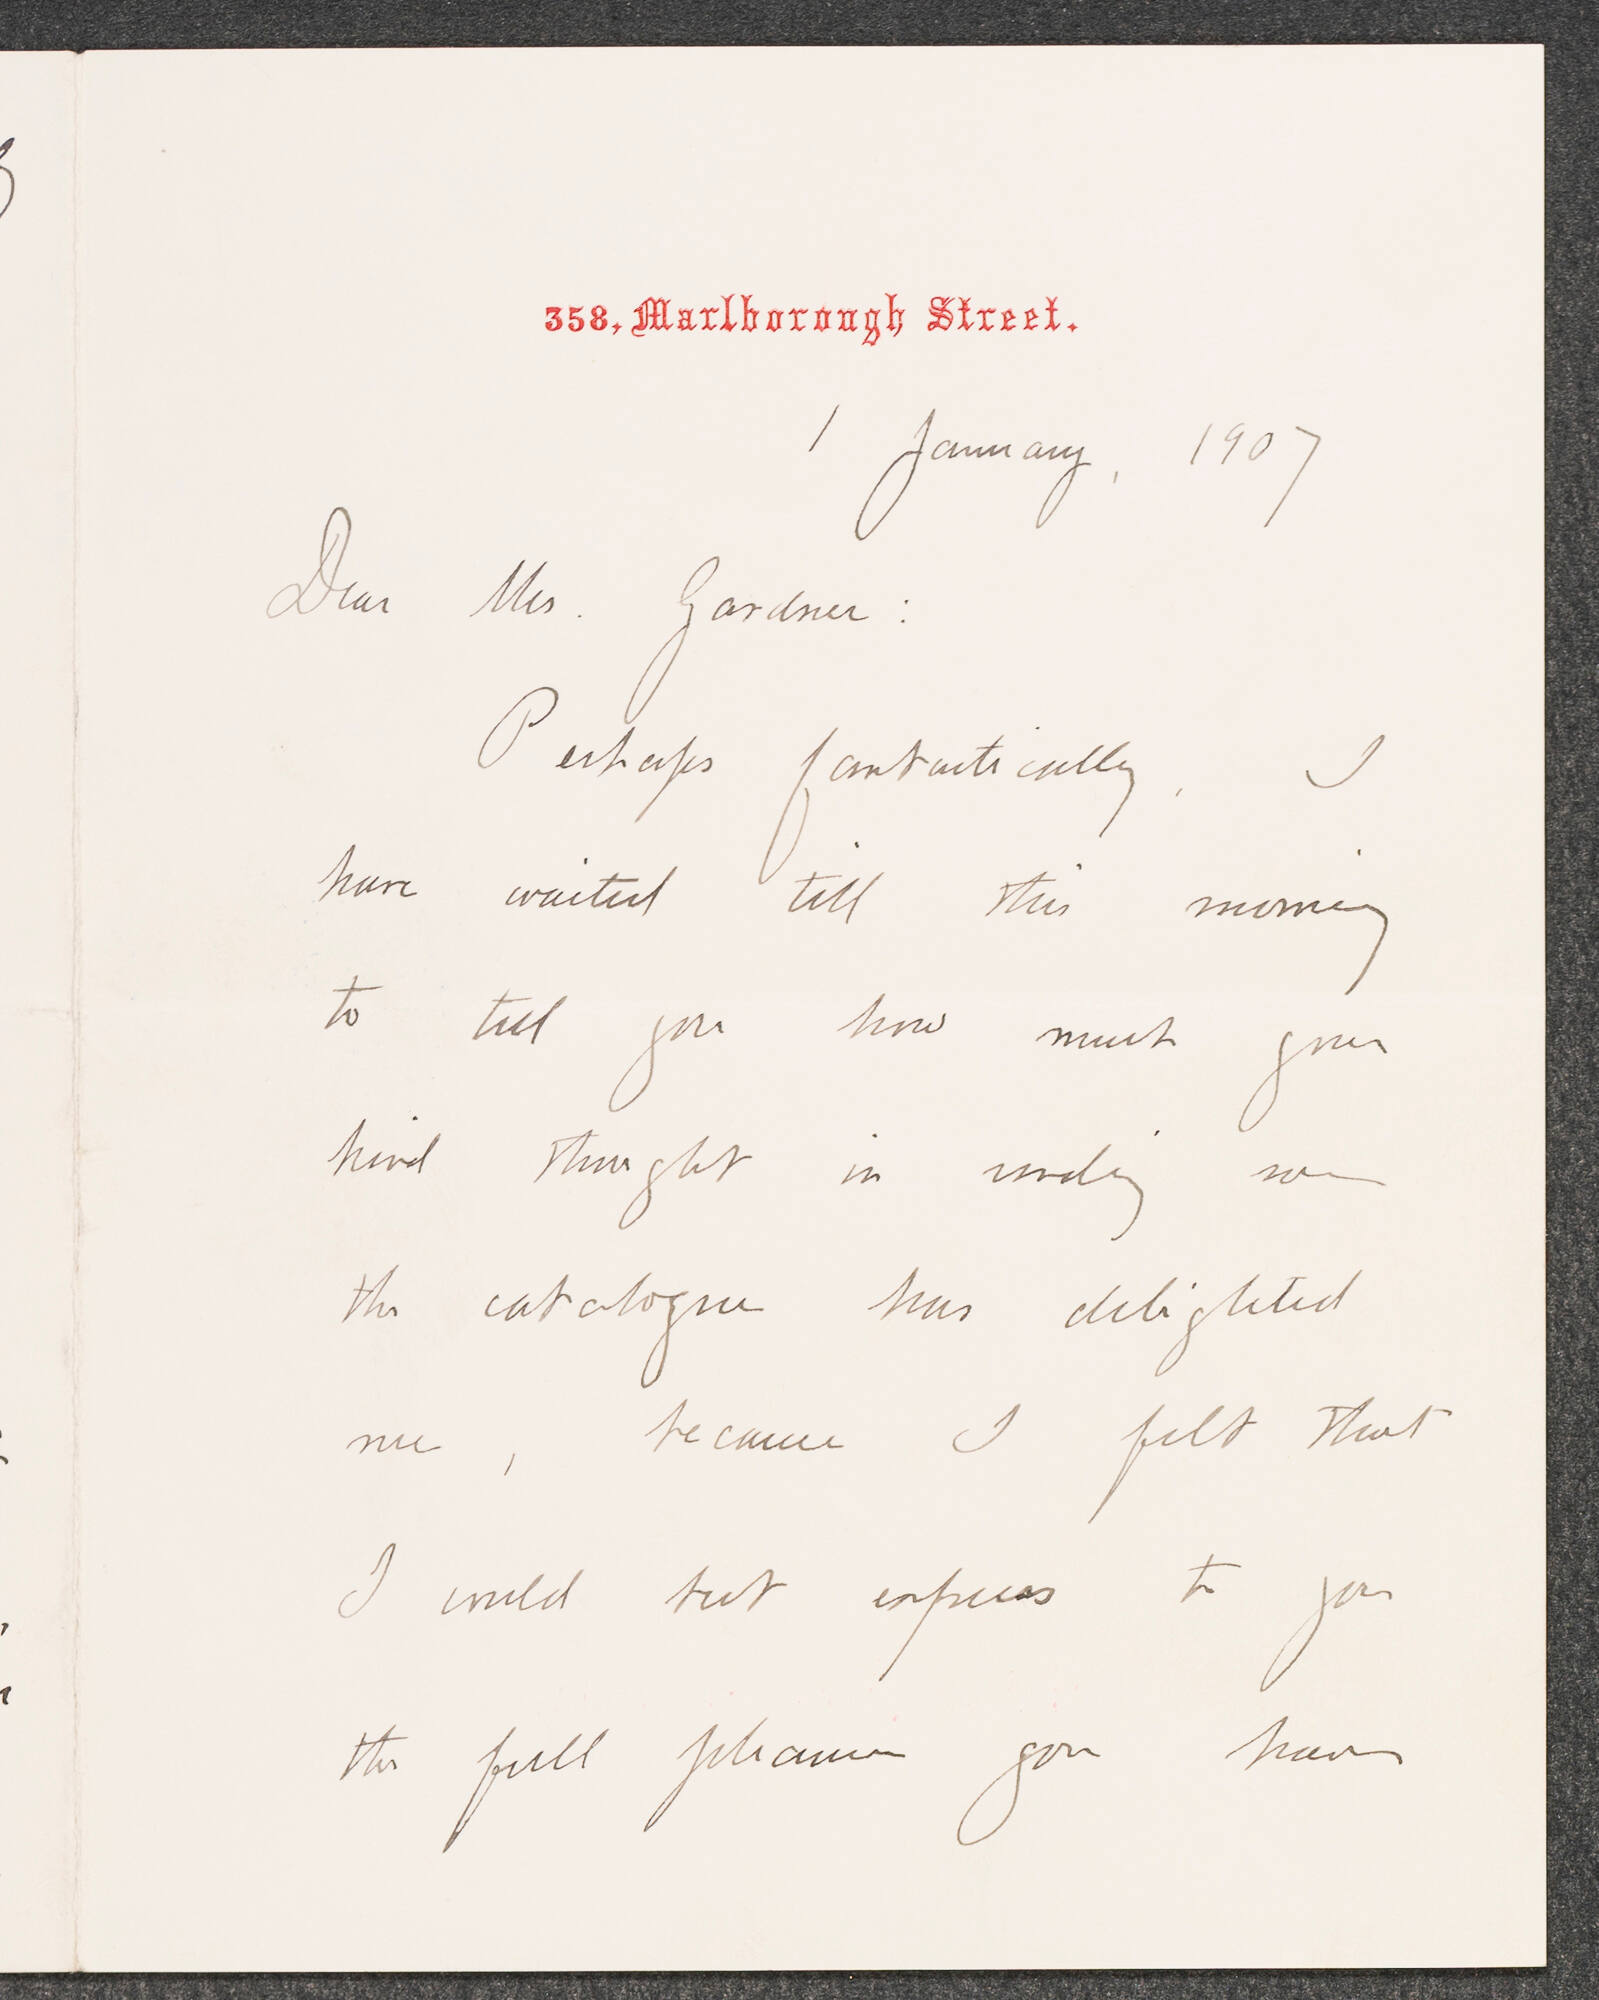 358, Marlborough Street.
1 January, 1907
Dear Mrs. Gardner:
Perhaps fantastically, I
have waited till this morning
to tell you how much your
kind thought in sending me
the catalogue has delighted
me, because I felt that
I could best express to you
the full pleasure you have